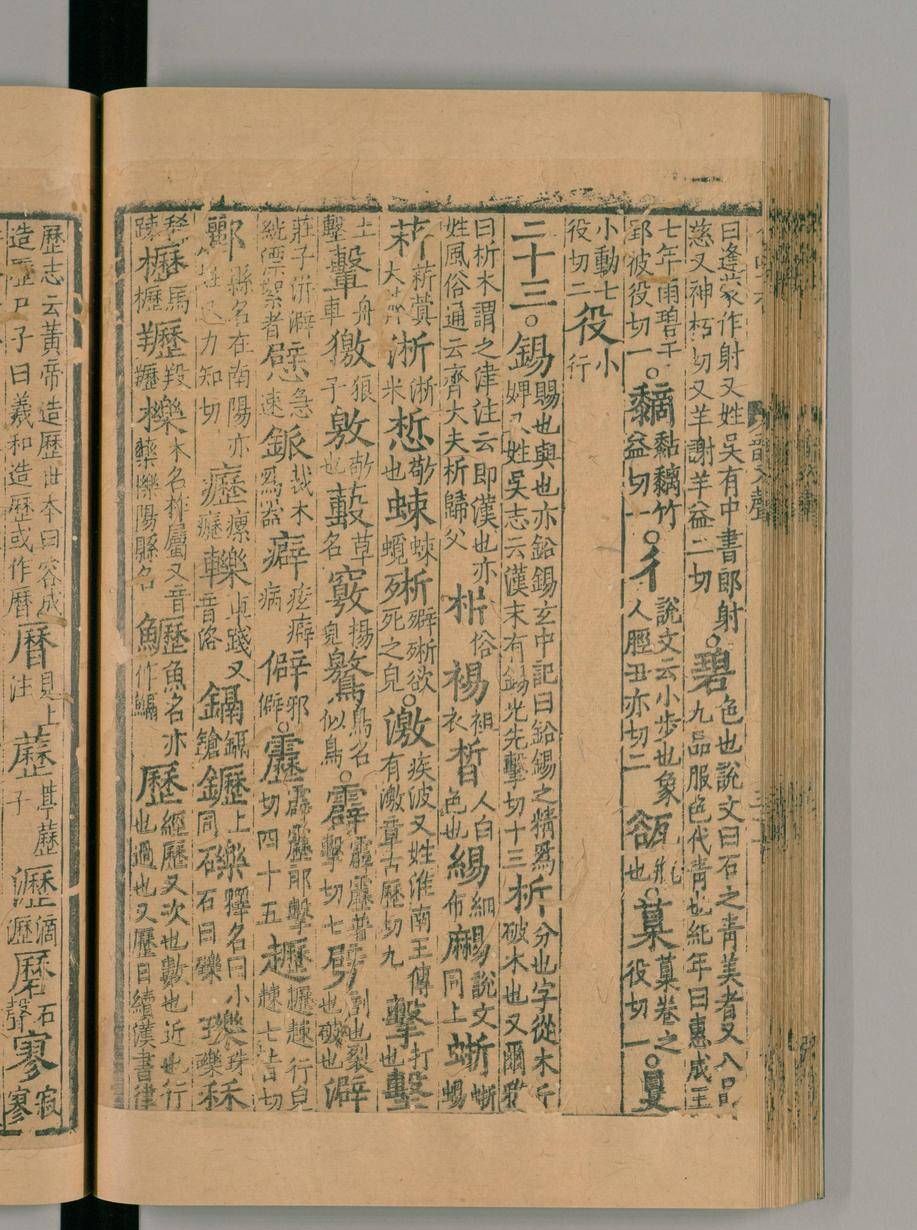 曰逢蒙作射又姓吳有中書郎射
慈又神柘切又羊謝羊益二切
。碧
色也說文曰石之青美者又八品
九品服色代青也紀年曰惠成王
七年雨碧于
郢彼役切一
竹
益切一
。彳
說文云小步也象
人脛丑亦切二
瓶
也
卷之
役切一
。
小動七
役切二
役
小
行
二十三。錫
賜也與也亦鈆錫玄中記曰鈆錫之精爲
婢又姓吳志云漢末有錫光先擊切十三
析
分也字從木斤
破木也又爾雅
曰析木謂之津注云即漢也亦
姓風俗通云齊大夫析歸父
俗
裼
袒
衣
晳
人白
色也
緆
細
布
說文
同上
蜥
蜥
蜴
菥
菥蓂
大薺
淅
淅
米
惁
敬
也
欲
死之皃
。激
疾波又姓淮南王傳
有激章古歷切九
擊
打
也
墼
土
墼
轚
舟
車
獥
狼
子
敫
也
薂
草
名
竅
揚
皃
鳥名
似烏
。霹
霹靂普
擊切七
劈
剖也裂
也破也
澼
莊子洴澼
絖漂絮者
憵
急
速
鈲
裁木
爲器
癖
癖
病
僻
邪
僻
。靂
霹靂郎擊
切四十五
越行皃
趚七昔切
酈
縣名在南陽亦
姓又力知切
癧
瘰
癧
轢
車踐又
音洛
鎘
鎘
鎗
上
同
礫
釋名曰小
石曰礫
瓅
珠
玓瓅
秝
稀
疎
櫪
馬
櫪
羖
櫟
木名柞屬又音
藥櫟陽縣名
魚名亦
作鰏
歷
經歷又次也數也近也行
也過也又歷日續漢書律
歷志云黃帝造歷世本曰容成
造歷尸子曰羲和造歷或作曆
曆
見上
注
藶
葶藶
子
瀝
滴
瀝
磿
石
聲
寂